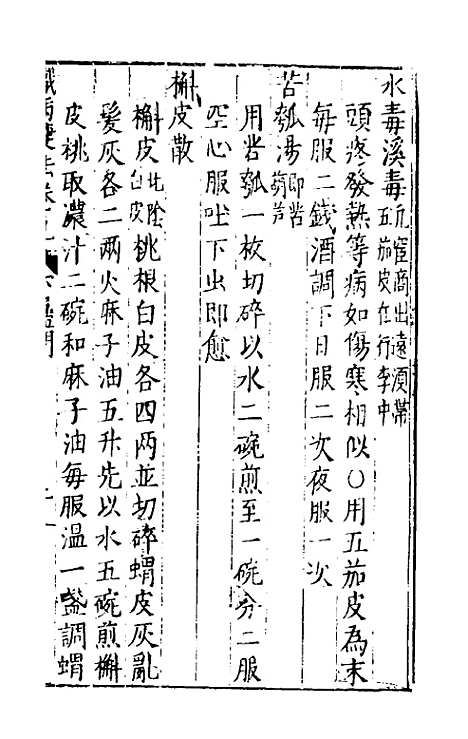 水毒溪毒凡宦商出遠須帶五茄皮在行李中
頭疼發熱等病如傷寒相似○用五茄皮為末
每服二錢酒調下日服二次夜服一次
苦瓠湯即苦葫芦
用苦瓠一枚切碎以水二碗煎至一碗分二服
空心服吐下出即愈
槲皮散
槲皮北陰白皮桃根白皮各四兩並切碎蝟皮灰亂
髮灰各二兩火麻子油五升先以水五碗煎槲
皮桃取濃汁二碗和麻子油每服溫一盞調蝟